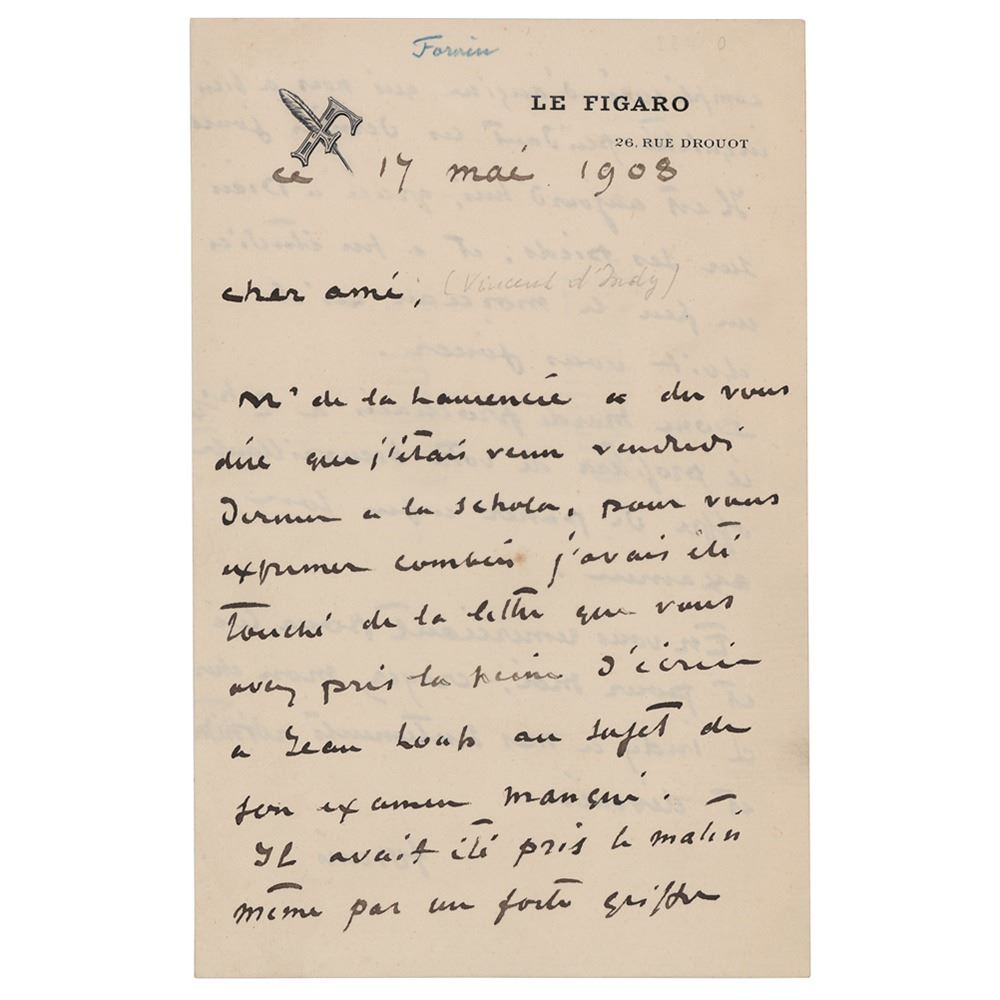 Forain
LE FIGARO
26, RUE DROUOT
F
ce 17 mai 1908
cher ami, (Vincent d'Indy)
Mr de la Laurencie a du vous
dire que j'étais venu vendredi
dernier a la schola, pour vous
exprimer combien j'avais été
touché de la lettre que vous
avez pris la peine d'écrire
a Jean Loup au sujet de
son examen manqué.
Il avait été pris le matin
même par un forte